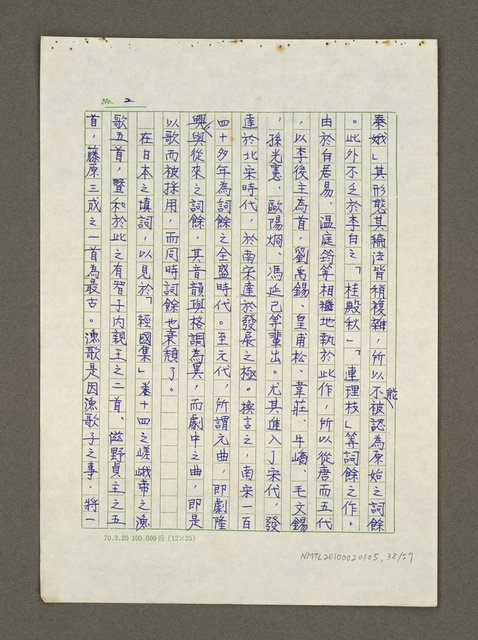 No. 2
秦娥」其形態其稿法皆稍複雜，所以不能被認為原始之詞餘
。此外不乏於李白之「桂殿秋」「連理枝」等詞餘之作。
由於白居易、温庭筠等相繼地執於此作，所以從唐而五代
，以李後主為首，劉禹錫、皇甫松、韋莊、牛嶠、毛文錫
，孫光憲、歐陽烱、馮延己等輩出。尤其進入了宋代，發
達於北宋時代，於南宋達於發展之極。換言之，南宋一百
四十多年為詞餘之全盛時代。至元代，所謂元曲，即劇隆
興與從來之詞餘，其音韻與格調為異，而劇中之曲，即是
以歌而被採用，而同時詞餘也衰頹了。
在日本之填詞，以見於「經國集」卷十四之嵯峨帝之漁
歌五首，暨和於此之有智子内親王之二首、滋野貞主之五
首，藤原三成之一首為最古。漁歌是因漁歌子之事，將一
70.3.20 100,000份 (12×25)
NMTL20100020105, 38/57